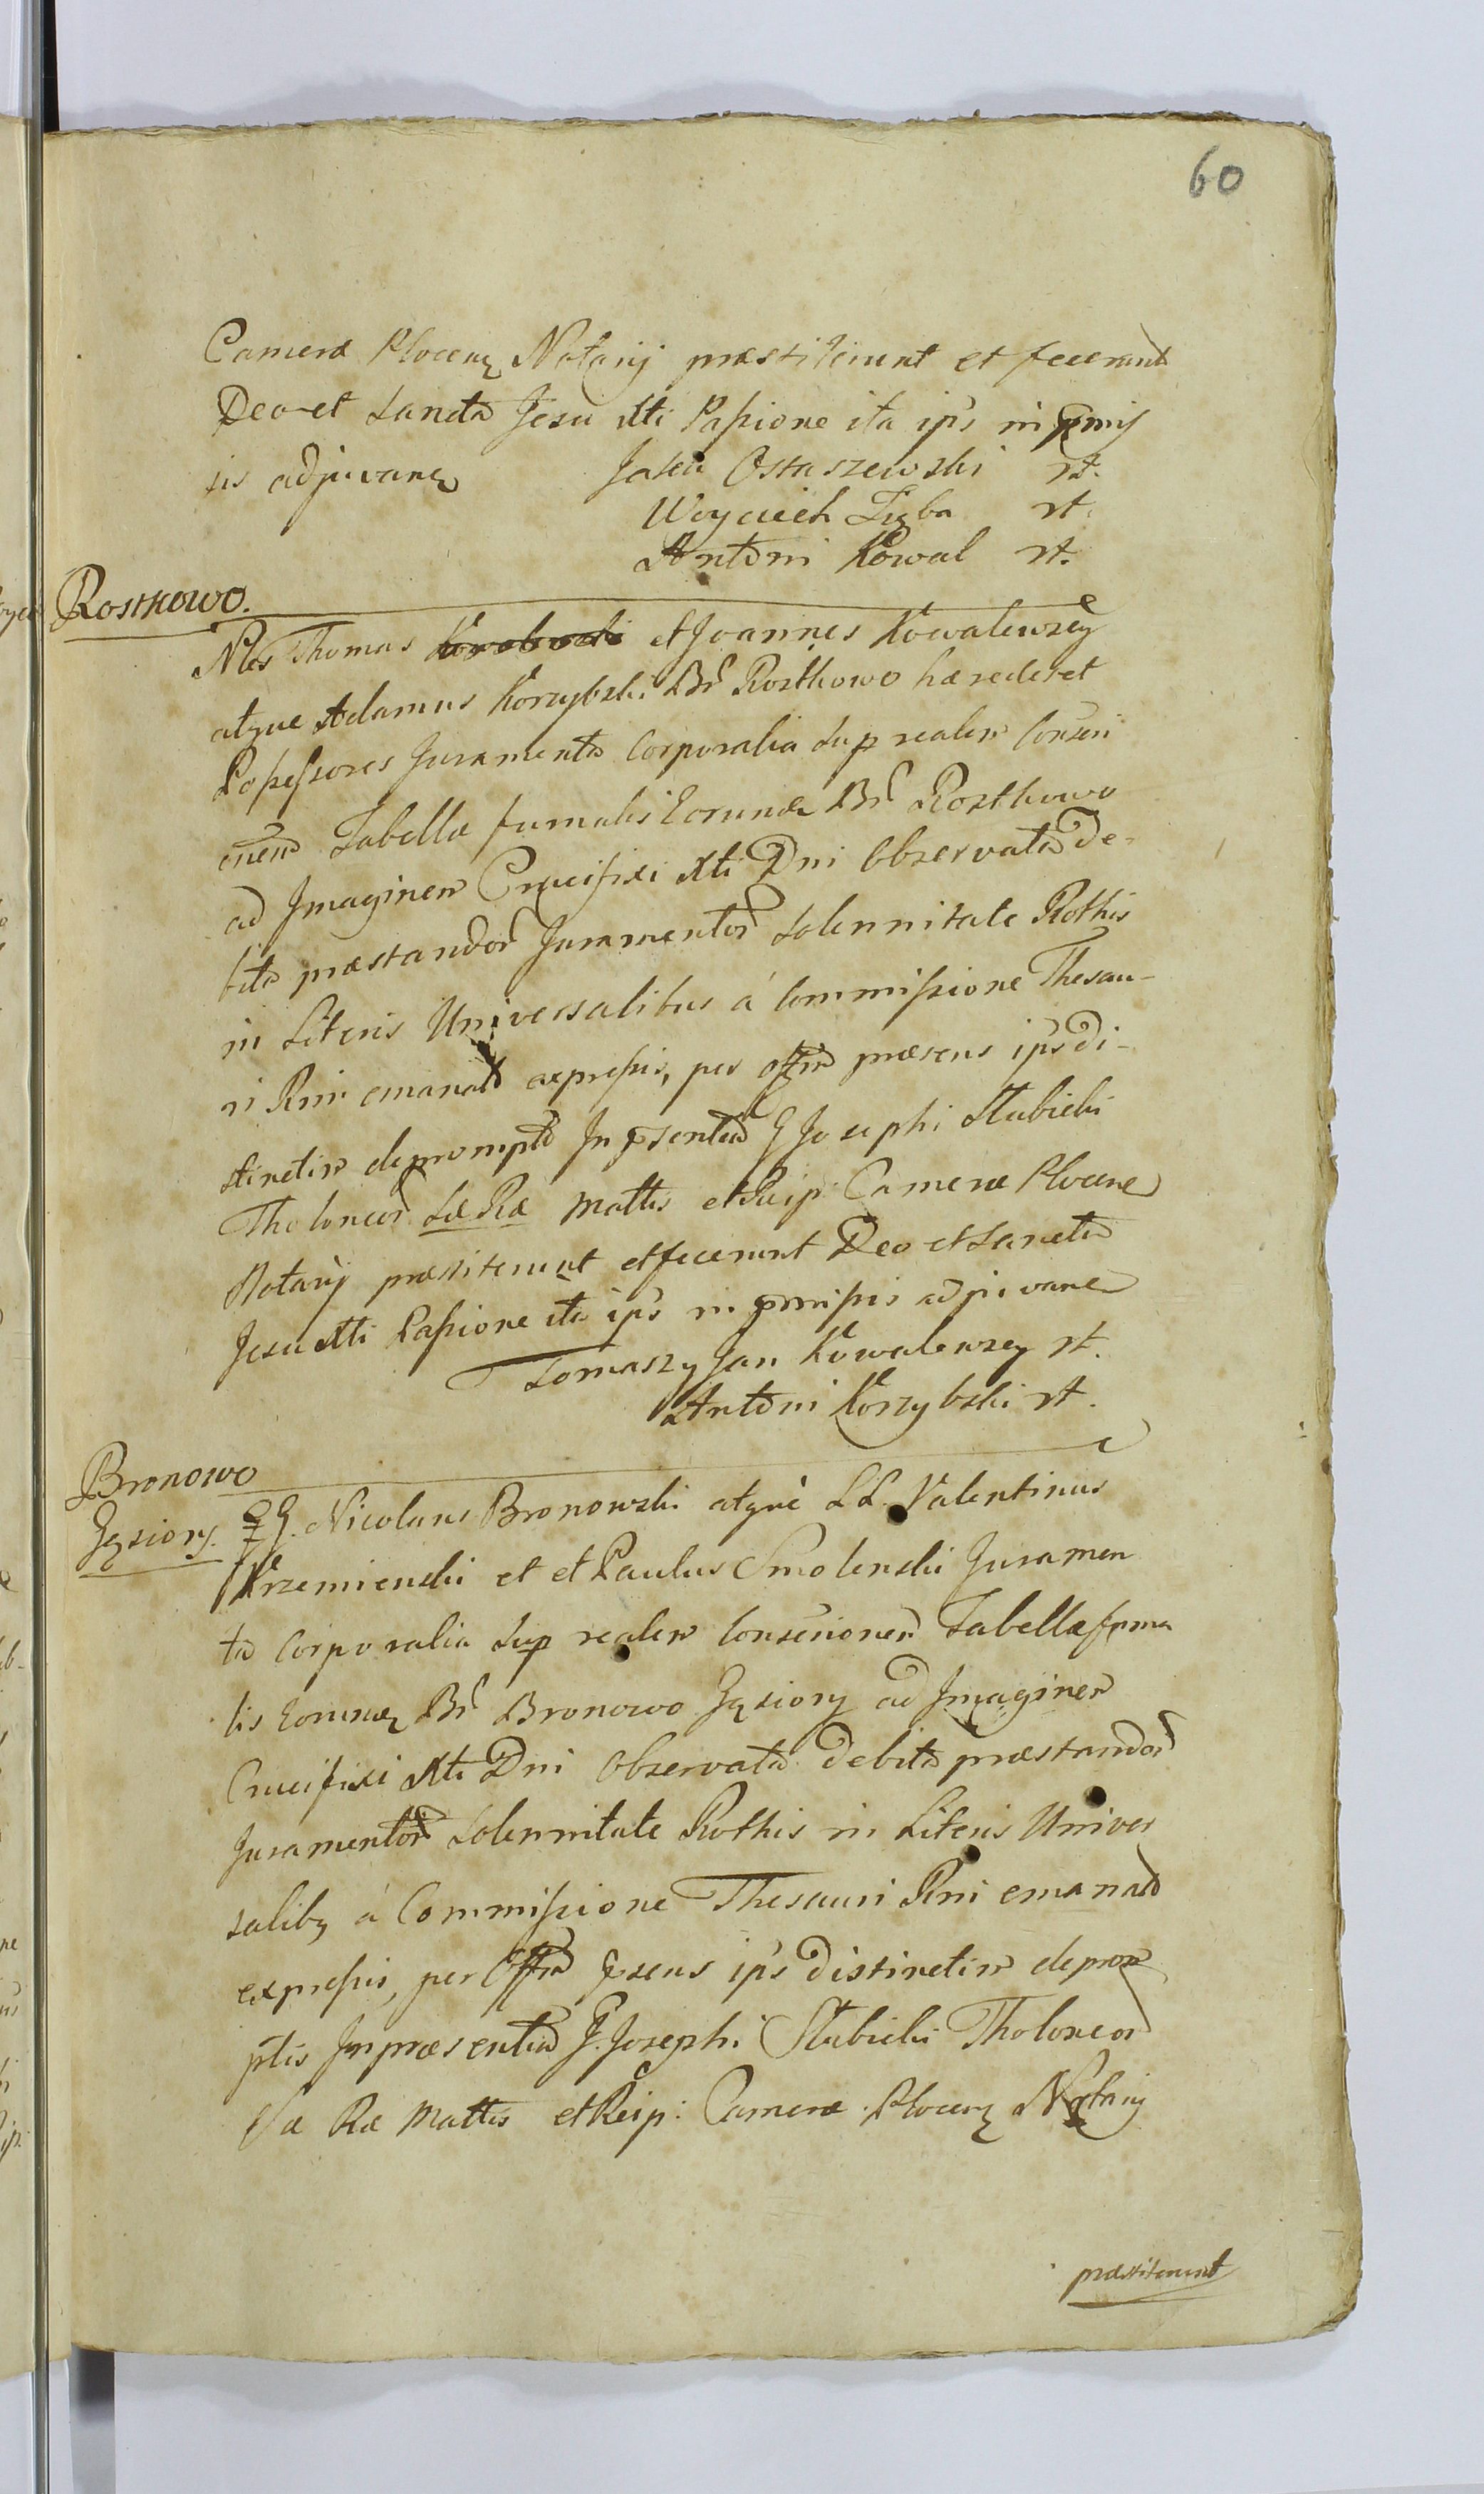 60
Cameræ Plocens Notarij præstiterunt et fecerunt
Deo et Sancta Jesu Xti Passione ita ips in pmis
sis adjuvane
Ostaszewski rt.
Woyciech Zięba rt.
Antoni Kowal rt.
Rostkowo.
Nles Thomas et Joannes Kowalewscy
atque Adamus Korzybski Br Rostkowo hæredes et
Possessores Juramenta Corporalia Sup realem Conscri
onem Tabellæ fumalis Eorundem Br Rostkowo
ad Imaginem Crucifixi Xti Dni Observata de-
bita præstandor Juramentor Solennitate Rothis
in Literis Universalibus á Commissione Thesau-
ri Rni emanatis expressis, per offm præsens ips di-
stinctim depromptis In psentia G Josephi Stubicki
Tholoneor Sæ Ræ Mattis et Reip: Cameræ Plocens
Notarij præstiterunt et fecerunt Deo et Sancta
Jesu Xti Passione ita ips in præmissis adjuvane
Tomasz y Jan Kowalewscy rt.
Antoni Korzybski rt.
Bronowo
Zęsiory. GG. Nicolaus Bronowski atque LL. Valentinus
Krzemienski et et Paulus Smolenski Juramen
ta Corporalia Sup realem Conscrionem Tabellæ fuma
lis Eorundem Br Bronowo Zęsiory ad Imaginem
Crucifixi Xti Dni Observata debita præstandor
Juramentor Solennitate Rothis in Literis Univer
salibq á Commissione Thesauri Rni emanatis
expressis, per Offm psens ips distinctim deprom
ptis In præsentia G. Josephi Stubicki Tholoneor
Sæ Ræ Mattis et Reip: Cameræ Plocens Notarij
præstiterunt